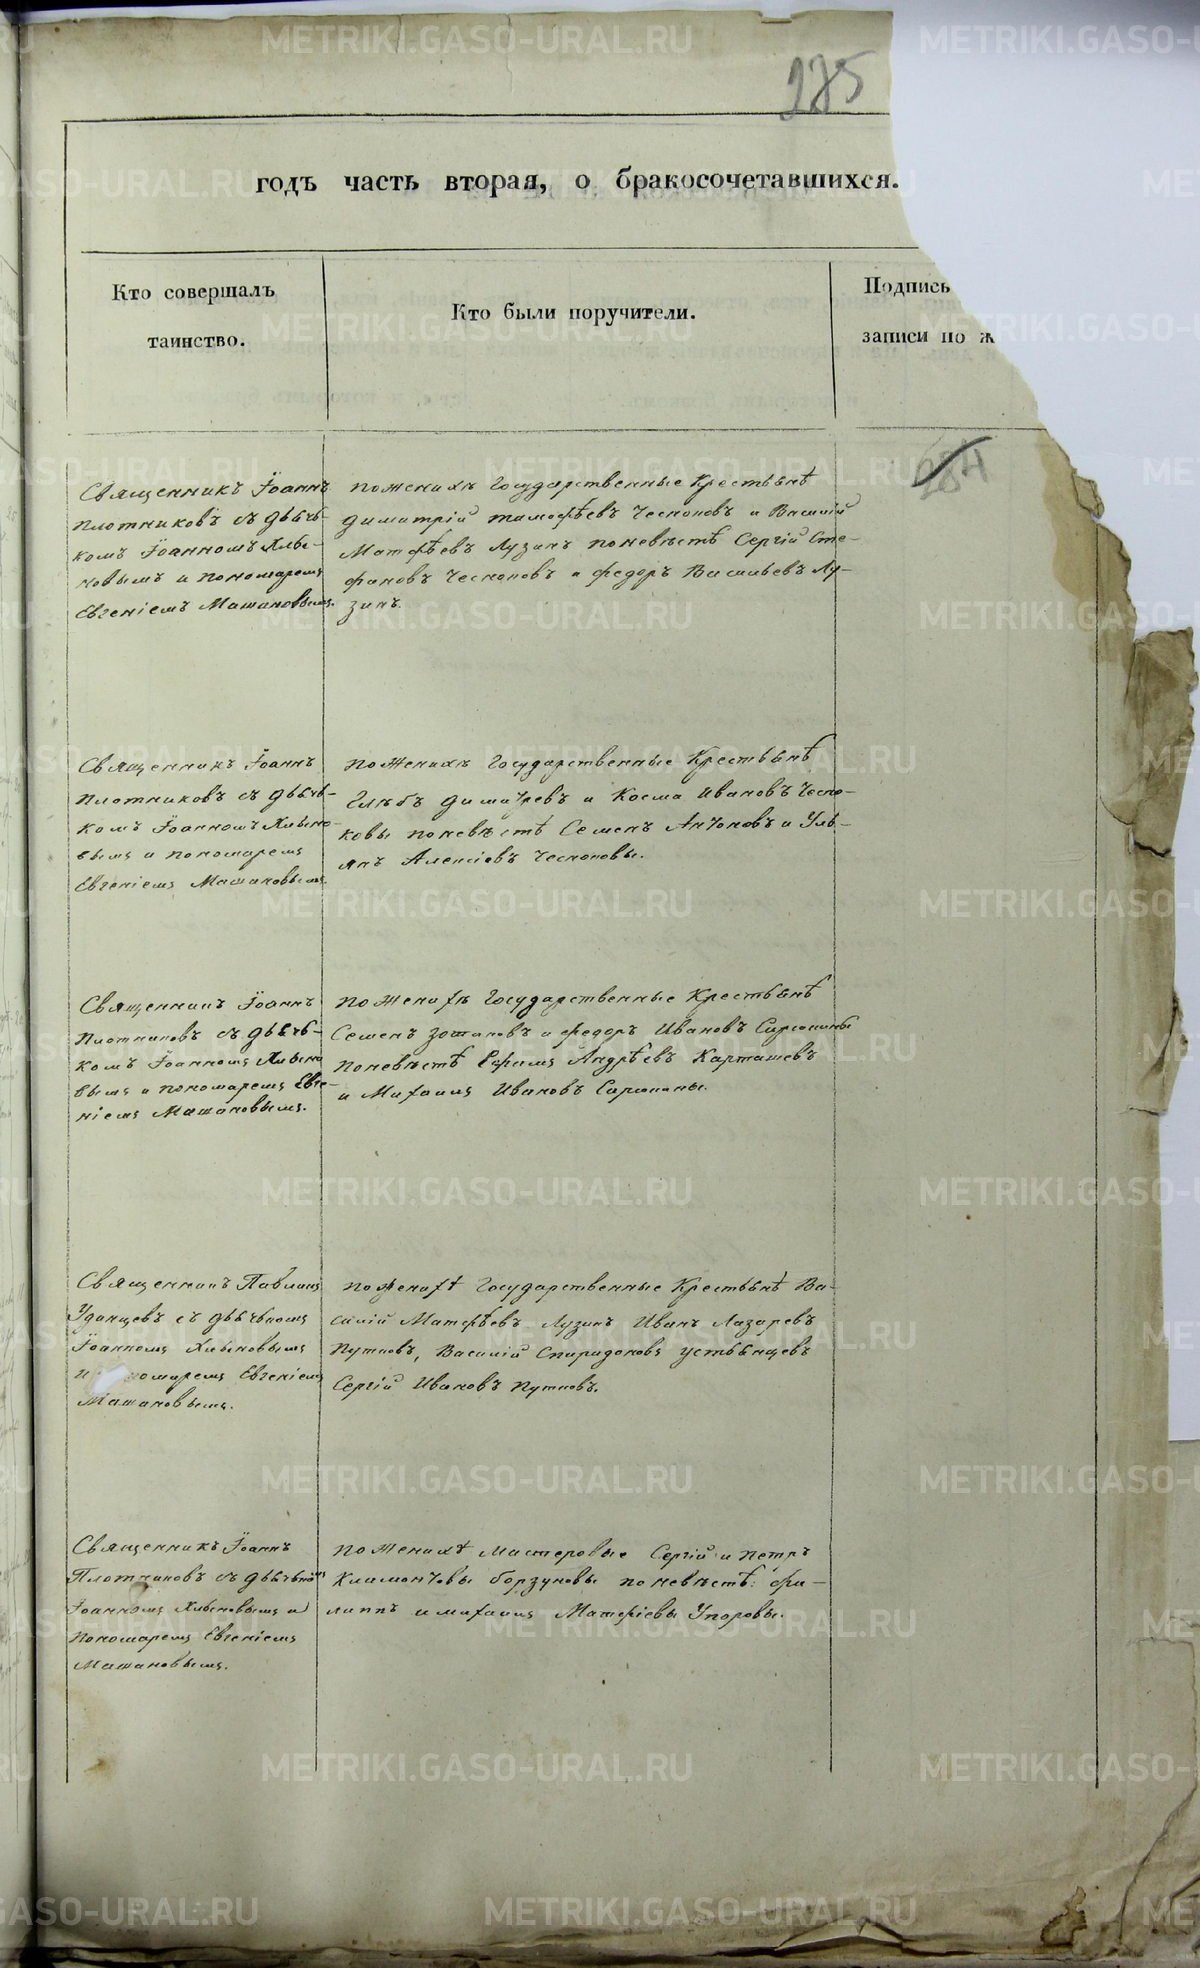 285
годъ часть вторая, о бракосочетавшихся.
Кто совершалъ
таинство.
Кто были поручители.
Подпись
записи по ж
284
Священникъ Іоаннъ
Плотниковъ съ дьяч-
комъ Іоанномъ Хлы-
новымъ и пономаремъ
Евгеніемъ Машановымъ.
по женихѣ Государственные Крестьянѣ
Димитрій Тимофѣевъ Чесноковъ и Василій
Матфѣевъ Лузинъ по невѣстѣ Сергій Сте-
фановъ Чесноковъ и Федоръ Васильевъ Лу-
зинъ.
Священникъ Іоаннъ
Плотниковъ съ дьяч-
комъ Іоанномъ Хлыно-
вымъ и пономаремъ
Евгеніемъ Машановымъ.
по женихѣ Государственные Крестьянѣ
Глѣбъ Димитревъ и Косма Ивановъ Чесно-
ковы по невѣстѣ Семенъ Антоновъ и Уль-
янъ Алексіевъ Чесноковы.
Священникъ Іоаннъ
Плотниковъ съ дьяч-
комъ Іоанномъ Хлыно
вымъ и пономаремъ Евге-
ніемъ Машановымъ.
по женихѣ Государственные Крестьянѣ
Семенъ и Федоръ Ивановъ
по невѣстѣ Ефимъ Андрѣевъ Карташевъ
и Михаилъ Ивановъ
Священникъ Павлинъ
Удинцевъ съ дьячкомъ
Іоанномъ Хлыновымъ
и номаремъ Евгеніемъ
Машановымъ.
по женихѣ Государственные Крестьянѣ Ва-
силій Матфѣевъ Лузинъ Иванъ Лазаревъ
Путковъ, Василій Спиридоновъ Устьянцевъ
Сергій Ивановъ Путковъ.
Священникъ Іоаннъ
Плотниковъ съ дьячкомъ
Іоанномъ Хлыновымъ и
пономаремъ Евгеніемъ
Машановымъ.
по женихѣ Мастеровые Сергій и Петръ
Климонтовы Борзуновы по невѣстѣ: Фи-
липпъ и Михаилъ Матфіевы Упоровы.
METRIKI.GASO-URAL.RU